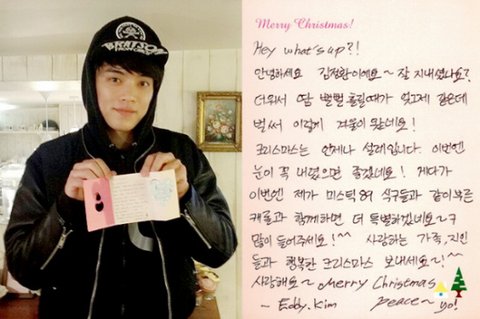 Merry Christmas!
Hey what's up?!
안녕하세요 김정환이에요~ 잘 지내셨나요?
더워서 땀 뻘뻘 흘릴때가 엊그제 같은데
벌써 이렇게 겨울이 왔네요!
크리스마스는 언제나 설레입니다 이번엔
눈이 꼭 내렸으면 좋겠네요! 게다가
이번엔 제가 미스틱89 식구들과 같이 부른
캐롤과 함께하면 더 특별하겠네요~ㅋ
많이 들어주세요!^^ 사랑하는 가족,지인
들과 행복한 크리스마스 보내세요~!^^
사랑해요~ Merry Christmas
~ Eddy.Kim peace~ yo!